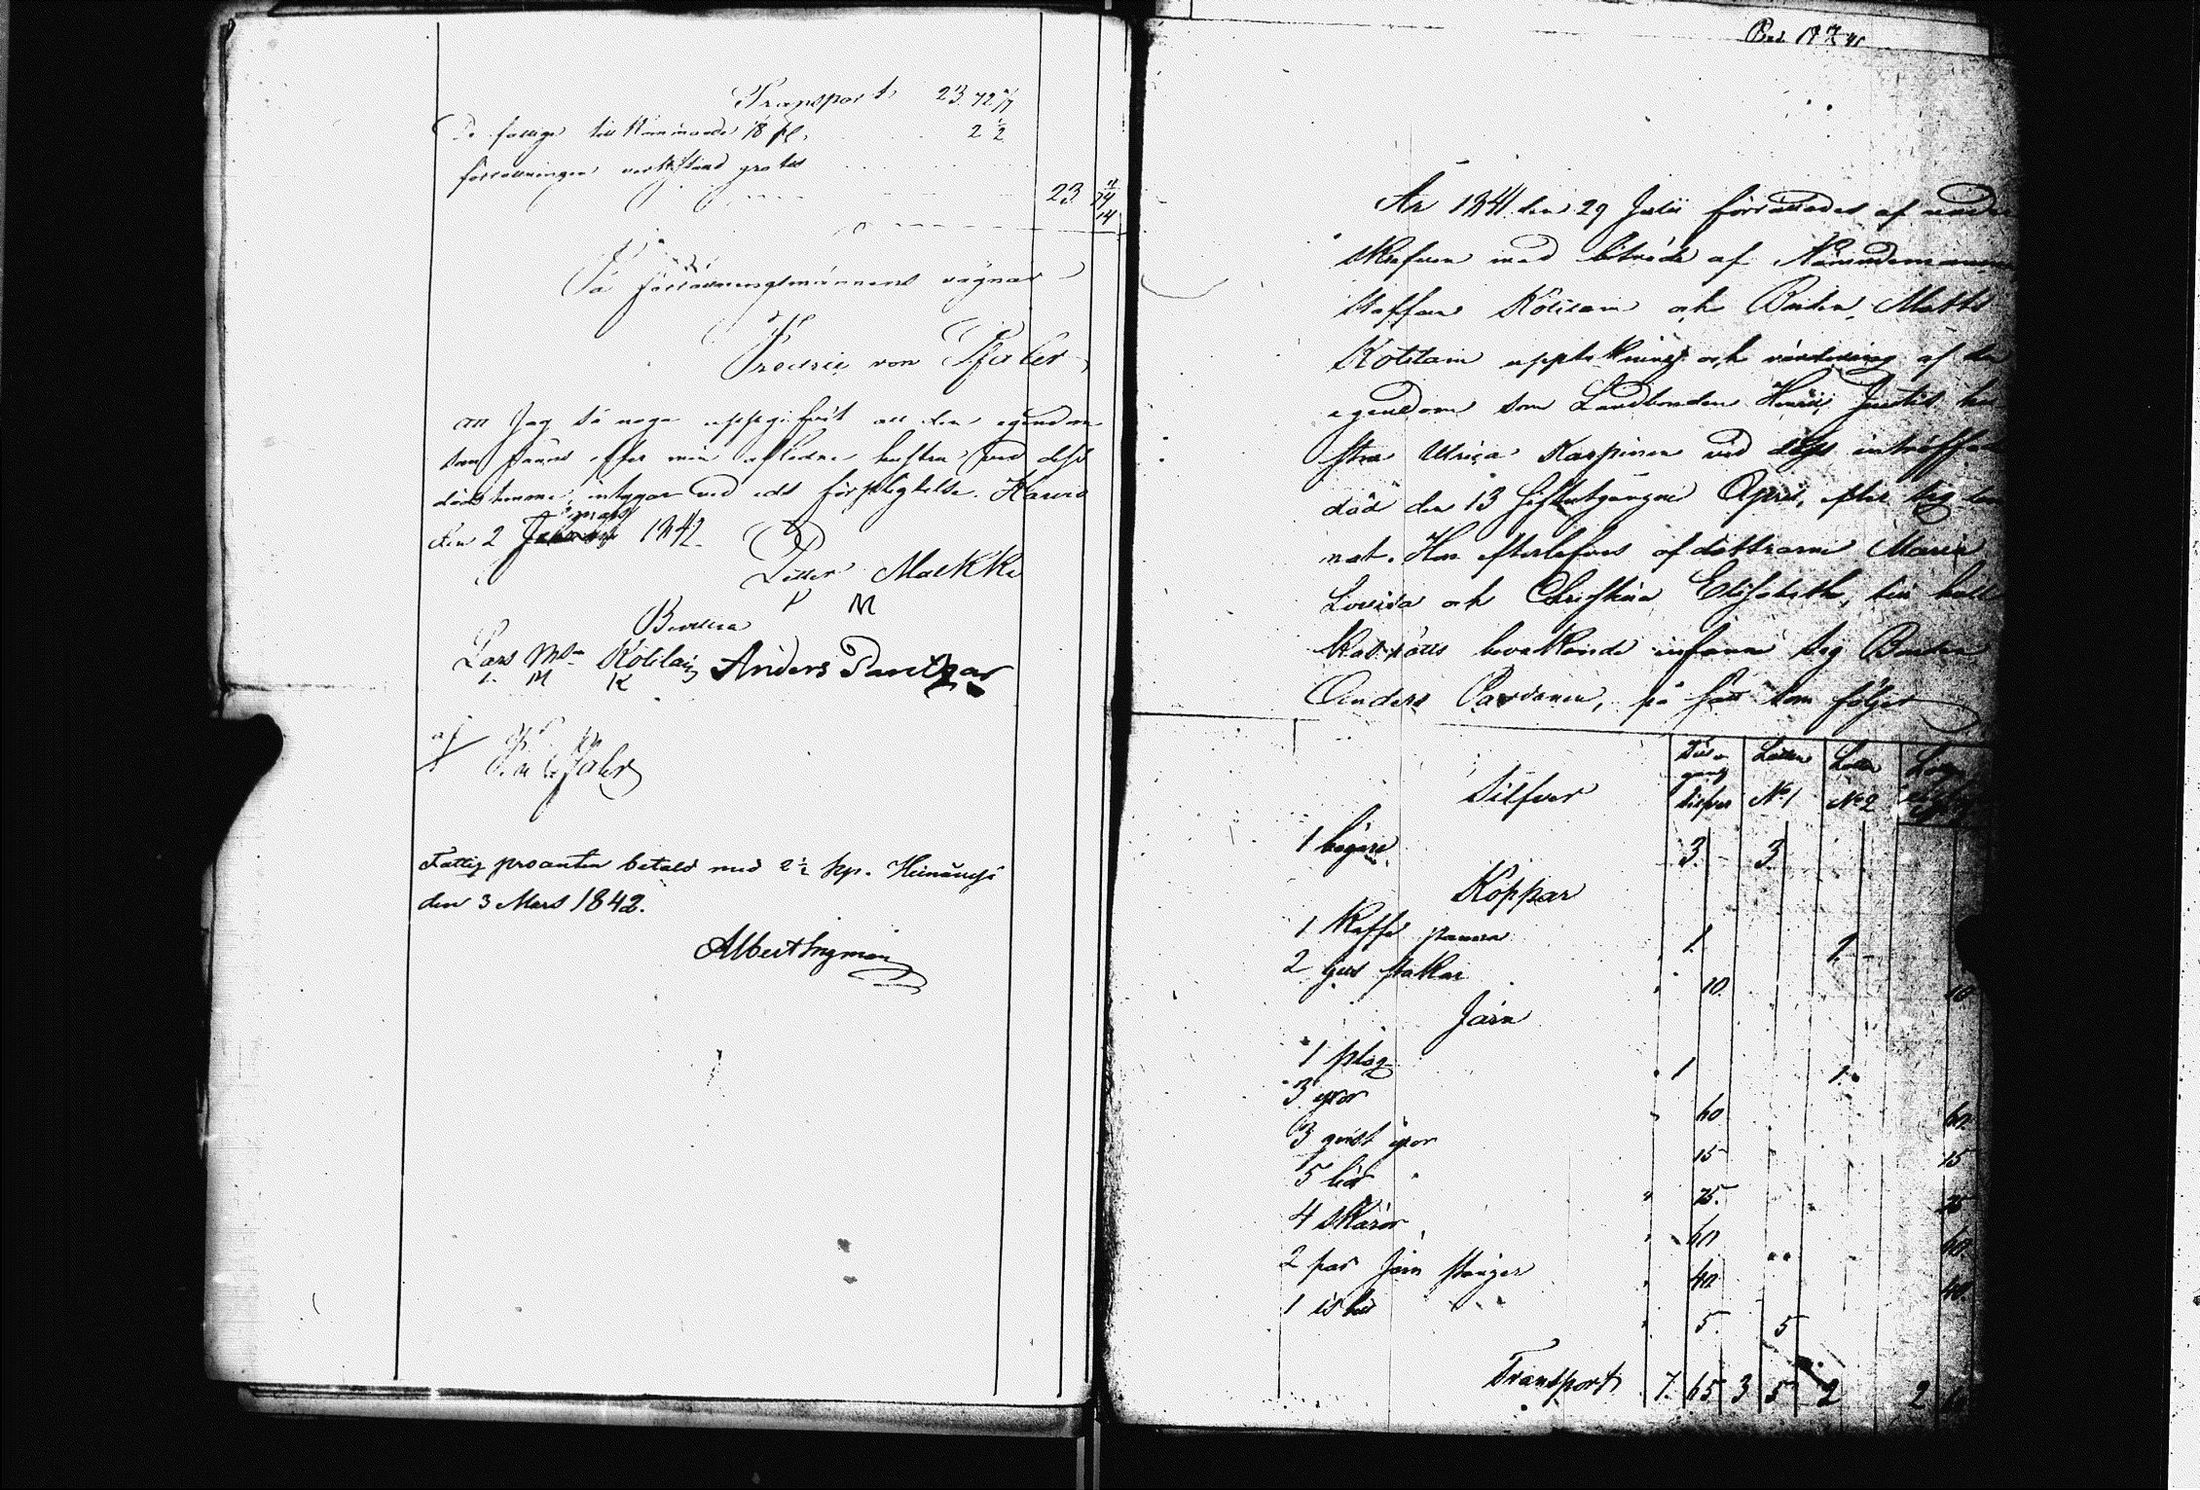 Transport 23. 72
De fattige tillkommande 1/8 pC. 2 1/2
förrättningen verkstäld gratis
23 74
På förrättningsmännens vägnar
Fredric von Pfaler
Att Jag så noga uppgifvit all den egendom
som fanns efter min aflidne hustru vid dess
dödstimme, intygar med eds förpligtelse.
den 2 Mars 1842.
Petter Mackki
P M
Bevittna
Lars Ms:n Kotilain Anders Partgar
L M K
Fattig procenten betald med 2 1/2 kop. Heinäwesi
den 3 Mars 1842.
Albert Ingman
År 1841 den 29 Julii förrättades af under
skrefven med biträde af Nämndemannen
Staffan Kotilain och Bonden Matts
Kotilain uppteckning och värdering af den
egendom som Landbonden Henric hu
stru Ulrica Karpinen vid dess inträffade
död den 13 sistutgångne April, efter sig lem
nat. Hon efterlefves af döttrarne Maria
Lovisa och Christina Elisabeth,
bevakande infann sig Bonden
Anders Partanen, på sätt som följer
Silfver Silfver Lotten No 1 Lotten No 2
1 bägare 3. 3.
Koppar
1 Kaffe panna 1. 1.
2 ljus stakar 10. 10
Järn
1 plog 1 1.
3 yxor 60 60
3 qvist yxor 15 15
5 liar 25. 25
4 skäror 60 60
2 par Järn stänger 40 40.
1 is bill 5. 5
Transport 7. 65 3 5 2 2 10